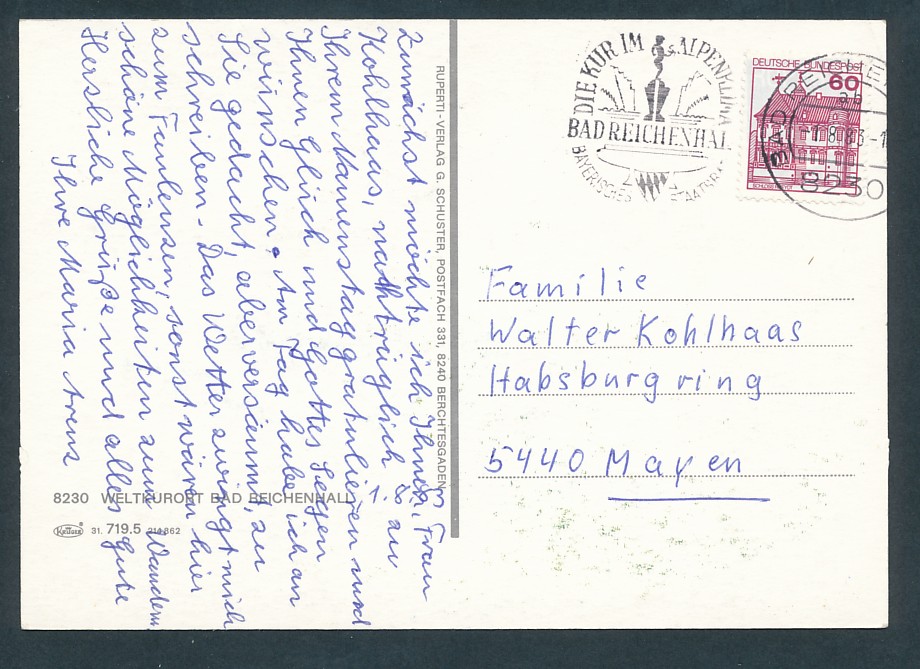 Zunächst möchte ich Ihnen, Frau
Kohlhaas, nachträglich zu
Ihrem Namenstag gratulieren und
Ihnen Glück und Gottes Segen
wünschen. Am Tag habe ich an
Sie gedacht, aber versäumt, zu
schreiben. Das Wetter zwingt mich
zum Faulenzen, sonst wären hier
schöne Möglichkeiten zum Wandern.
Herzliche Grüße und alles Gute
Ihre Maria
RUPERTI-VERLAG G. SCHUSTER, POSTFACH 331, 8240 BERCHTESGADEN
8230 WELTKURORT BAD REICHENHALL
31. 719.5 214 862
DIE KUR IM ALPENKLIMA
BAD REICHENHAL
DEUTSCHE BUNDESPOST
60
BAD REICHE
8230
Familie
Walter Kohlhaas
Habsburgring
5440 Mayen